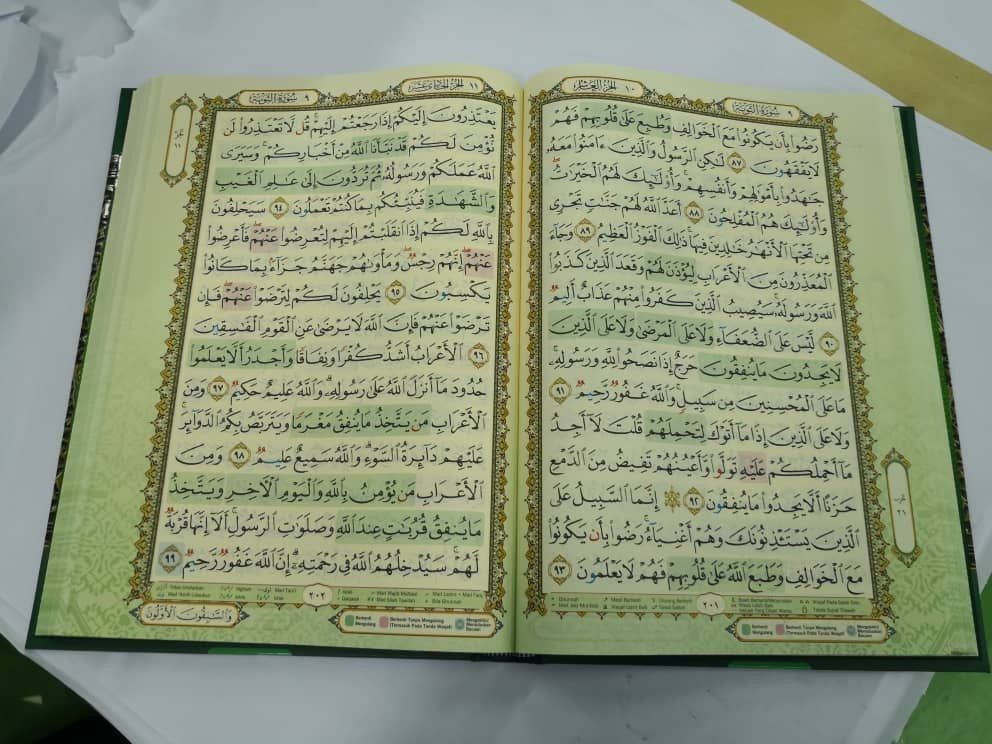 الجزء العاشر ١٠
٩ سورة التوبة
رَضُوا۟ بِأَن يَكُونُوا۟ مَعَ ٱلْخَوَالِفِ وَطُبِعَ عَلَىٰ قُلُوبِهِمْ فَهُمْ
لَا يَفْقَهُونَ ٨٧ لَٰكِنِ ٱلرَّسُولُ وَٱلَّذِينَ ءَامَنُوا۟ مَعَهُۥ
جَٰهَدُوا۟ بِأَمْوَٰلِهِمْ وَأَنفُسِهِمْ ۚ وَأُو۟لَٰٓئِكَ لَهُمُ ٱلْخَيْرَٰتُ ۖ
وَأُو۟لَٰٓئِكَ هُمُ ٱلْمُفْلِحُونَ ٨٨ أَعَدَّ ٱللَّهُ لَهُمْ جَنَّٰتٍ تَجْرِى
مِن تَحْتِهَا ٱلْأَنْهَٰرُ خَٰلِدِينَ فِيهَا ۚ ذَٰلِكَ ٱلْفَوْزُ ٱلْعَظِيمُ ٨٩ وَجَآءَ
ٱلْمُعَذِّرُونَ مِنَ ٱلْأَعْرَابِ لِيُؤْذَنَ لَهُمْ وَقَعَدَ ٱلَّذِينَ كَذَبُوا۟
ٱللَّهَ وَرَسُولَهُۥ ۚ سَيُصِيبُ ٱلَّذِينَ كَفَرُوا۟ مِنْهُمْ عَذَابٌ أَلِيمٌ
٩٠ لَّيْسَ عَلَى ٱلضُّعَفَآءِ وَلَا عَلَى ٱلْمَرْضَىٰ وَلَا عَلَى ٱلَّذِينَ
لَا يَجِدُونَ مَا يُنفِقُونَ حَرَجٌ إِذَا نَصَحُوا۟ لِلَّهِ وَرَسُولِهِۦ ۚ
مَا عَلَى ٱلْمُحْسِنِينَ مِن سَبِيلٍ ۚ وَٱللَّهُ غَفُورٌ رَّحِيمٌ ٩١
وَلَا عَلَى ٱلَّذِينَ إِذَا مَآ أَتَوْكَ لِتَحْمِلَهُمْ قُلْتَ لَآ أَجِدُ
مَآ أَحْمِلُكُمْ عَلَيْهِ تَوَلَّوا۟ وَّأَعْيُنُهُمْ تَفِيضُ مِنَ ٱلدَّمْعِ
حَزَنًا أَلَّا يَجِدُوا۟ مَا يُنفِقُونَ ٩٢ ۞ إِنَّمَا ٱلسَّبِيلُ عَلَى
ٱلَّذِينَ يَسْتَـْٔذِنُونَكَ وَهُمْ أَغْنِيَآءُ ۚ رَضُوا۟ بِأَن يَكُونُوا۟
مَعَ ٱلْخَوَالِفِ وَطَبَعَ ٱللَّهُ عَلَىٰ قُلُوبِهِمْ فَهُمْ لَا يَعْلَمُونَ ٩٣
٢٠١
Berhenti Mengulang
Berhenti Tanpa Mengulang (Termasuk Pada Tanda Waqaf)
الجزء الحادي عشر ١١
٩ سورة التوبة
يَعْتَذِرُونَ إِلَيْكُمْ إِذَا رَجَعْتُمْ إِلَيْهِمْ ۚ قُل لَّا تَعْتَذِرُوا۟ لَن
نُّؤْمِنَ لَكُمْ قَدْ نَبَّأَنَا ٱللَّهُ مِنْ أَخْبَارِكُمْ ۚ وَسَيَرَى
ٱللَّهُ عَمَلَكُمْ وَرَسُولُهُۥ ثُمَّ تُرَدُّونَ إِلَىٰ عَٰلِمِ ٱلْغَيْبِ
وَٱلشَّهَٰدَةِ فَيُنَبِّئُكُم بِمَا كُنتُمْ تَعْمَلُونَ ٩٤ سَيَحْلِفُونَ
بِٱللَّهِ لَكُمْ إِذَا ٱنقَلَبْتُمْ إِلَيْهِمْ لِتُعْرِضُوا۟ عَنْهُمْ ۖ فَأَعْرِضُوا۟
عَنْهُمْ ۖ إِنَّهُمْ رِجْسٌ ۖ وَمَأْوَىٰهُمْ جَهَنَّمُ جَزَآءًۢ بِمَا كَانُوا۟
يَكْسِبُونَ ٩٥ يَحْلِفُونَ لَكُمْ لِتَرْضَوْا۟ عَنْهُمْ ۖ فَإِن
تَرْضَوْا۟ عَنْهُمْ فَإِنَّ ٱللَّهَ لَا يَرْضَىٰ عَنِ ٱلْقَوْمِ ٱلْفَٰسِقِينَ
٩٦ ٱلْأَعْرَابُ أَشَدُّ كُفْرًا وَنِفَاقًا وَأَجْدَرُ أَلَّا يَعْلَمُوا۟
حُدُودَ مَآ أَنزَلَ ٱللَّهُ عَلَىٰ رَسُولِهِۦ ۗ وَٱللَّهُ عَلِيمٌ حَكِيمٌ ٩٧ وَمِنَ
ٱلْأَعْرَابِ مَن يَتَّخِذُ مَا يُنفِقُ مَغْرَمًا وَيَتَرَبَّصُ بِكُمُ ٱلدَّوَآئِرَ ۚ
عَلَيْهِمْ دَآئِرَةُ ٱلسَّوْءِ ۗ وَٱللَّهُ سَمِيعٌ عَلِيمٌ ٩٨ وَمِنَ
ٱلْأَعْرَابِ مَن يُؤْمِنُ بِٱللَّهِ وَٱلْيَوْمِ ٱلْءَاخِرِ وَيَتَّخِذُ
مَا يُنفِقُ قُرُبَٰتٍ عِندَ ٱللَّهِ وَصَلَوَٰتِ ٱلرَّسُولِ ۚ أَلَآ إِنَّهَا قُرْبَةٌ
لَّهُمْ ۚ سَيُدْخِلُهُمُ ٱللَّهُ فِى رَحْمَتِهِۦٓ ۗ إِنَّ ٱللَّهَ غَفُورٌ رَّحِيمٌ ٩٩
٢٠٢
وَالسَّابِقُونَ الْأَوَّلُونَ
Berhenti Mengulang
Berhenti Tanpa Mengulang (Termasuk Pada Tanda Waqaf)